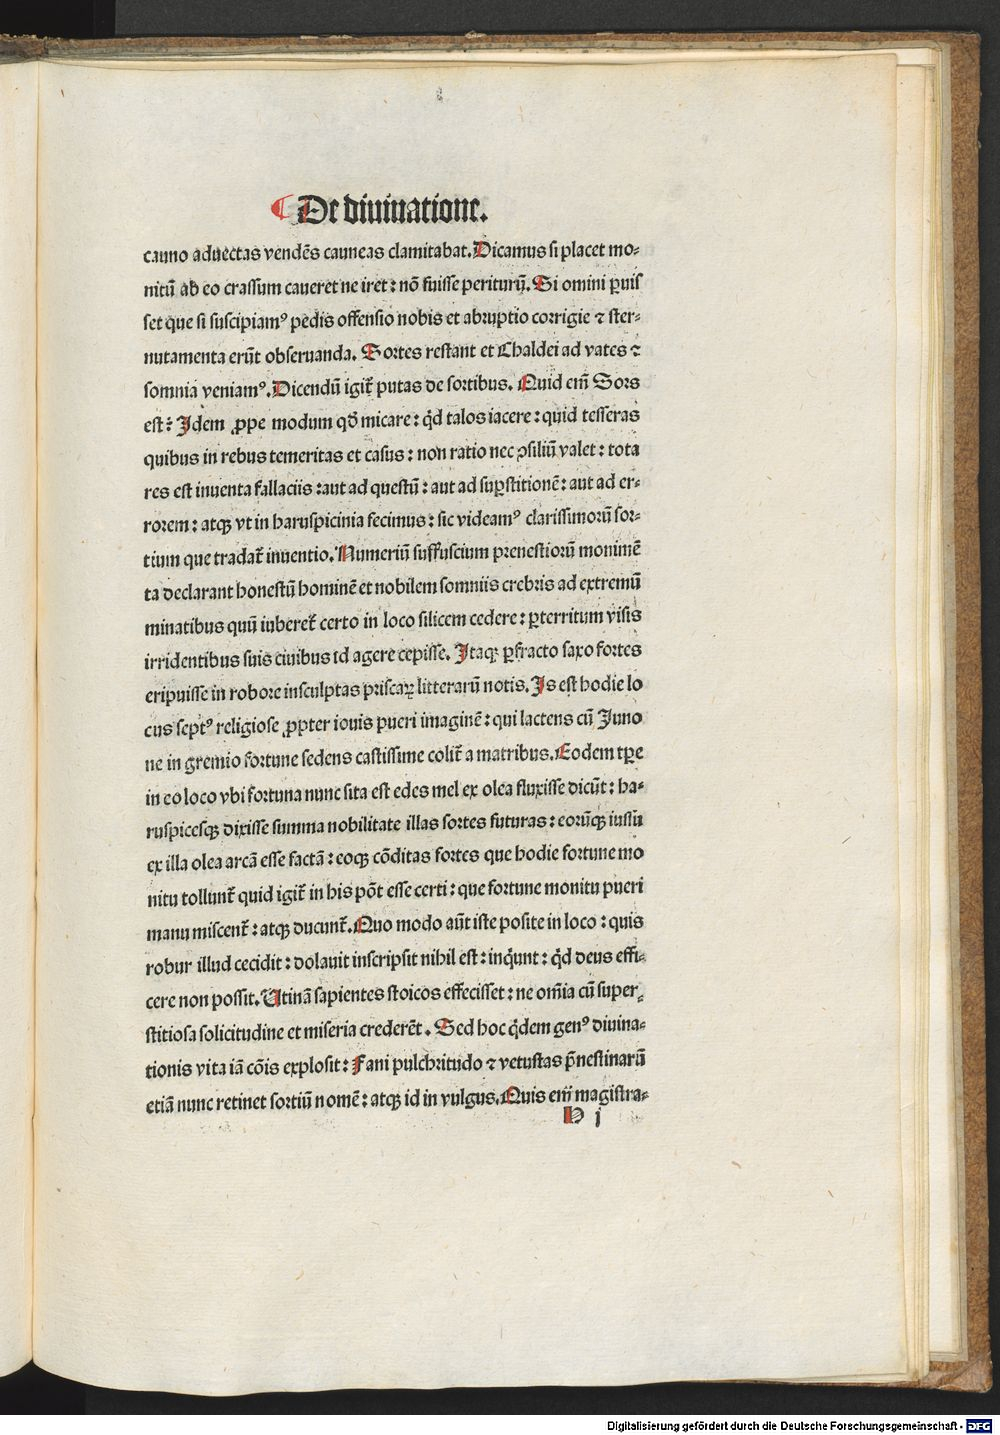 ¶ De diuinatione.
cauno aduectas vendēs cauneas clamitabat. Dicamus si placet mo⸗
nitū ab eo crassum caueret ne iret: nō fuisse periturū. Si omini ꝑuis
set que si suscipiamꝰ pedis offensio nobis et abruptio corrigie ⁊ ster⸗
nutamenta erūt obseruanda. Sortes restant et Chaldei ad vates ⁊
somnia veniamꝰ. Dicendū igit̄ putas de sortibus. Quid em̄ Sors
est: Idem ꝓpe modum qd̄ micare: qd̄ talos iacere: quid tesseras
quibus in rebus temeritas et casus: non ratio nec ꝯsiliū valet: tota
res est inuenta fallaciis: aut ad questū: aut ad suꝑstitionē: aut ad er⸗
rorem: atqꝫ vt in haruspicinia fecimus: sic videamꝰ clarissimorū sor⸗
tium que tradat̄ inuentio. Numeriū suffuscium prenestiorū monimē
ta declarant honestū hominē et nobilem somniis crebris ad extremū
minatibus quū iuberet̄ certo in loco silicem cedere: ꝑterritum visis
irridentibus suis ciuibus id agere cepisse. Itaqꝫ ꝑfracto saxo sortes
eripuisse in robore insculptas priscaꝝ litterarū notis. Is est hodie lo
cus septꝰ religiose ꝓpter iouis pueri imaginē: qui lactens cū Juno
ne in gremio fortune sedens castissime colit̄ a matribus. Eodem tꝑe
in eo loco vbi fortuna nunc sita est edes mel ex olea fluxisse dicūt: ha⸗
ruspicesqꝫ dixisse summa nobilitate illas sortes futuras: eorūqꝫ iussū
ex illa olea arcā esse factā: eoqꝫ cōditas sortes que hodie fortune mo
nitu tollunt̄ quid igit̄ in his pōt esse certi: que fortune monitu pueri
manu miscent̄: atqꝫ ducunt̄. Quo modo aūt iste posite in loco: quis
robur illud cecidit: dolauit inscripsit nihil est: inq̄unt: qd̄ deus effi⸗
cere non possit. Utinā sapientes stoicos effecisset: ne om̄ia cū super⸗
stitiosa solicitudine et miseria crederēt. Sed hoc q̄dem genꝰ diuina⸗
tionis vita iā cōis explosit: Fani pulchritudo ⁊ vetustas p̄nestinarū
etiā nunc retinet sortiū nomē: atqꝫ id in vulgus. Quis em̄ magistra⸗
h j
Digitalisierung gefördert durch die Deutsche Forschungsgemeinschaft - DFG